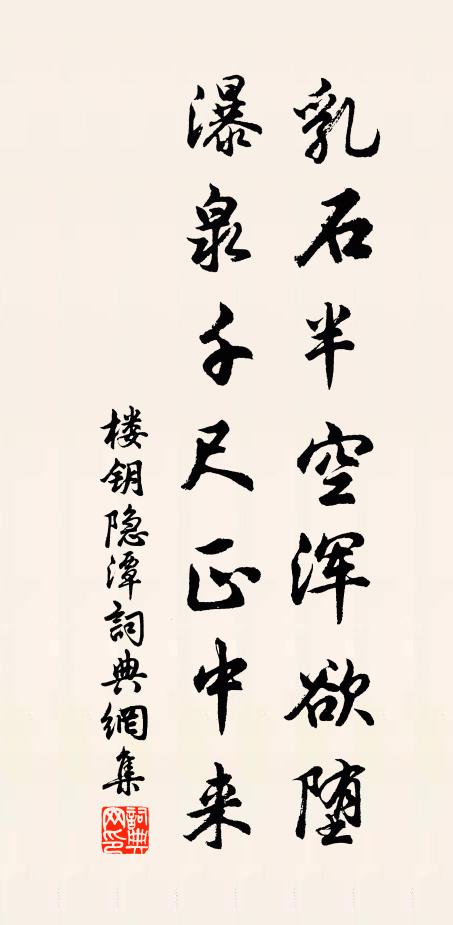 乳石半空浑欲堕
瀑泉千尺正中来
楼钥隐潭詞典網集
詞典網印